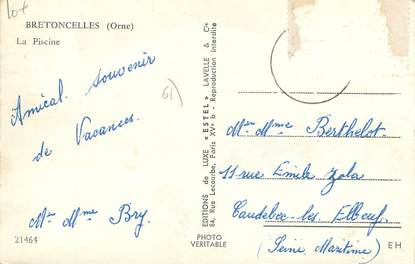 lot
BRETONCELLES (Orne)
La Piscine
Amical souvenir
de Vacances.
Mr. Mme Bry.
21464
61)
EDITIONS de LUXE "ESTEL" LAVELLE & Cie
84, Rue Lecourbe, Paris XVe b - Reproduction interdite
PHOTO
VERITABLE
Mr. Mme Berthelot.
11 rue Emile Zola
Caudebec-les Elbeuf
(Seine Maritime)
EH